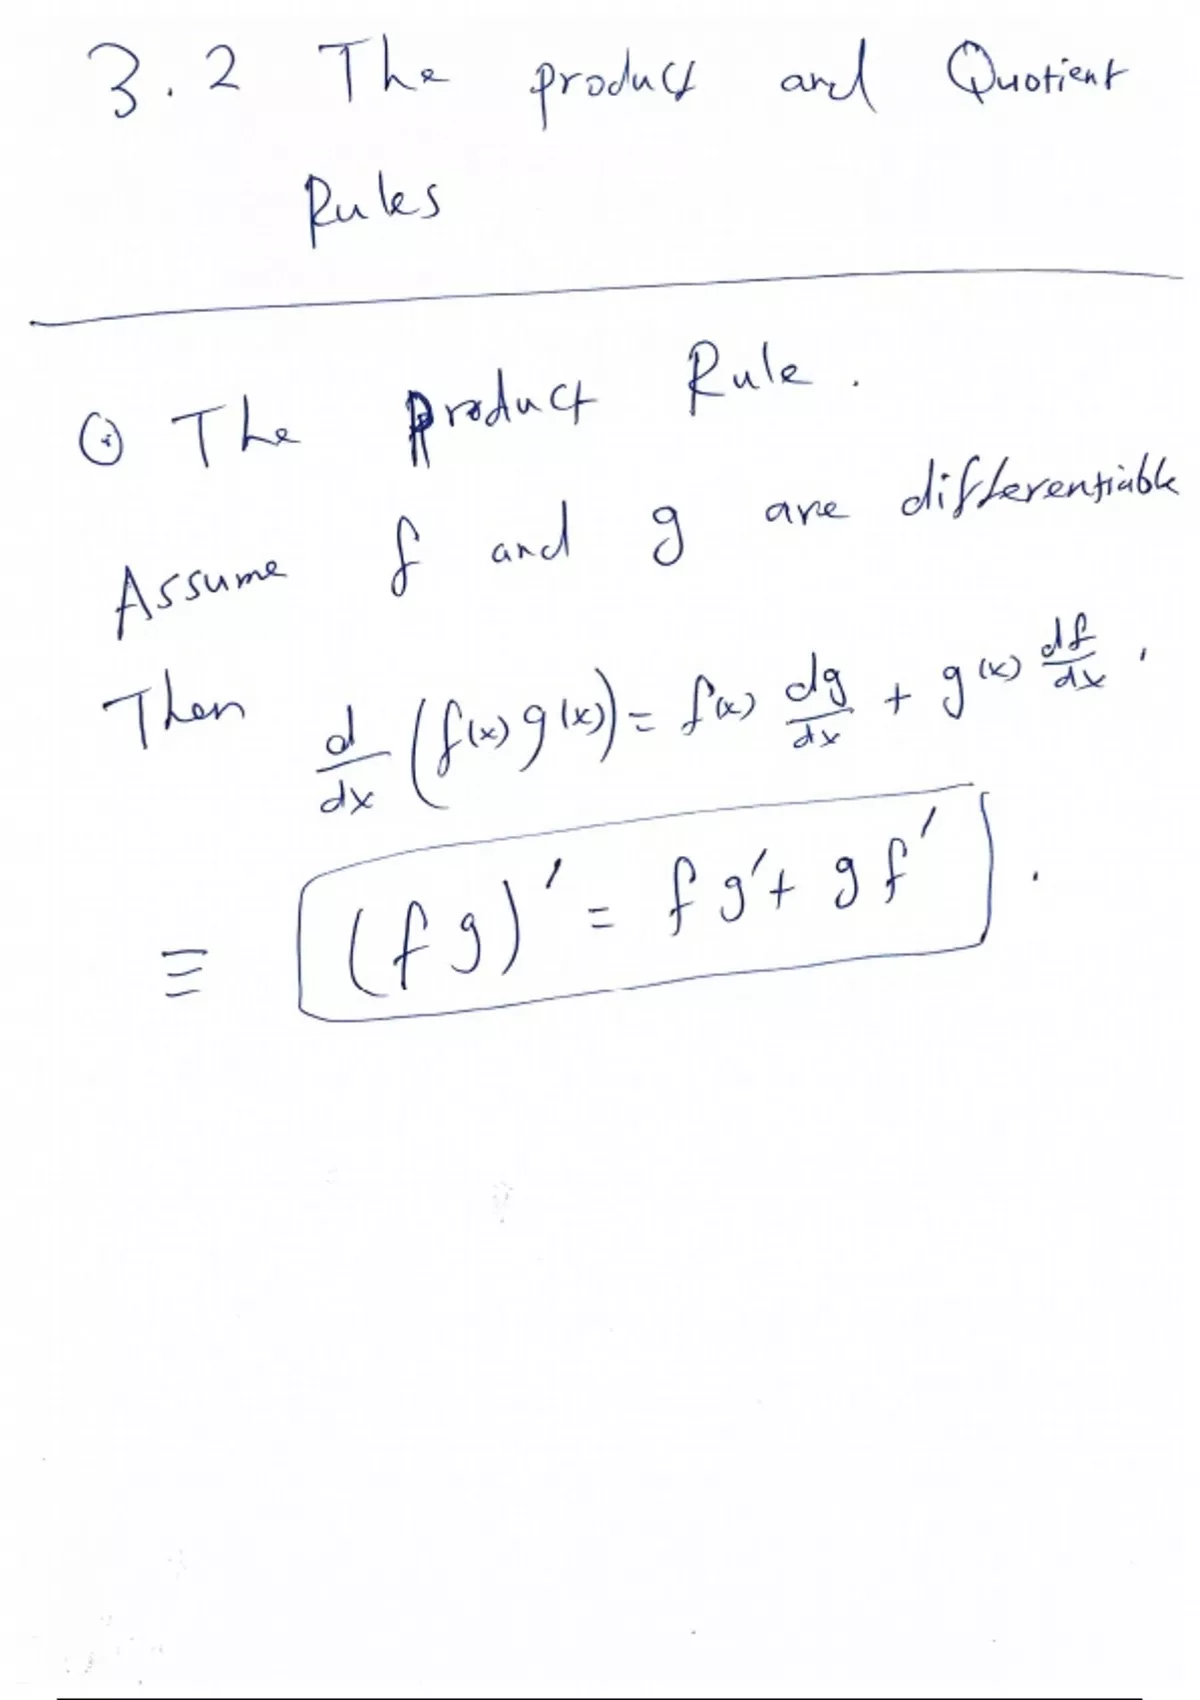 3.2 The product and Quotient
Rules
⊙ The Product Rule.
Assume f and g are differentiable
Then d/dx (f(x) g(x)) = f(x) dg/dx + g(x) df/dx .
≡ (f g)' = f g' + g f' .